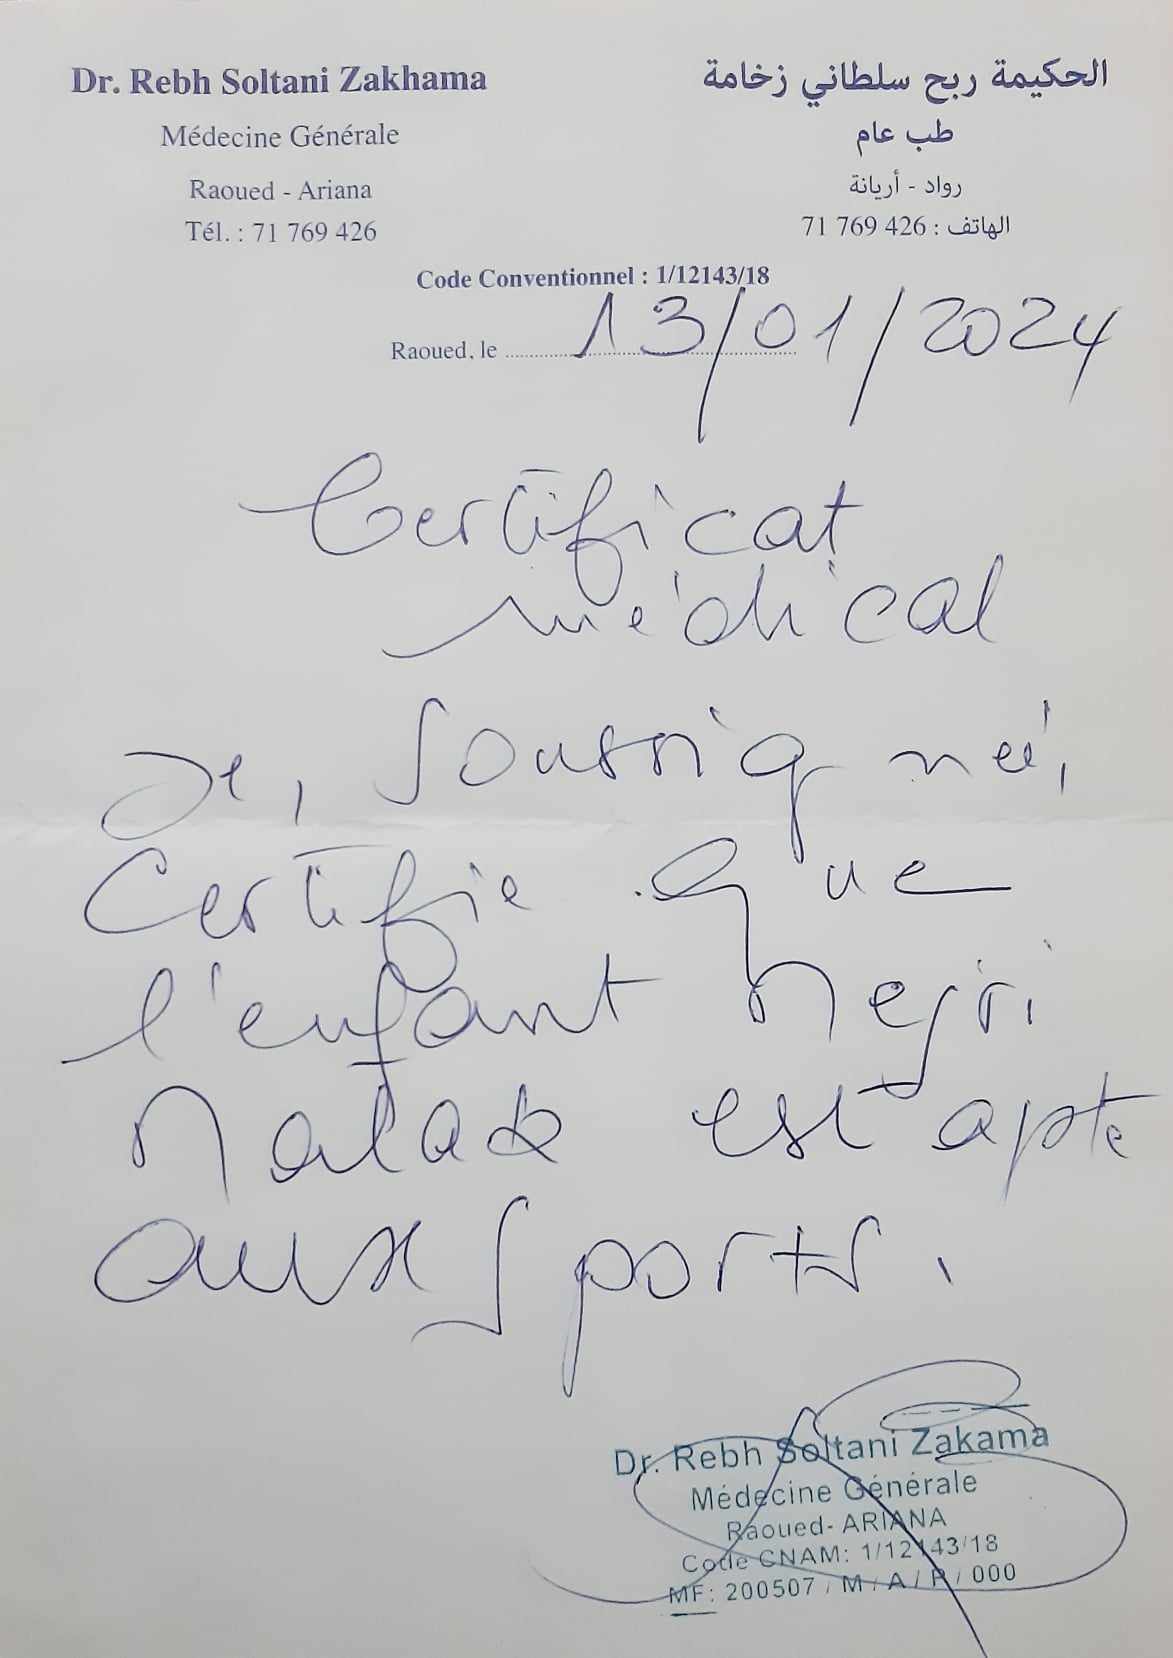 Dr. Rebh Soltani Zakhama
Médecine Générale
Raoued - Ariana
Tél. : 71 769 426
الحكيمة ربح سلطاني زخامة
طب عام
رواد - أريانة
الهاتف : 426 769 71
Code Conventionnel : 1/12143/18
Raoued, le 13/01/2024
Certificat
médical
Je, soussignée,
certifie que
l'enfant Nejri
Malak est apte
aux sports.
Dr. Rebh Soltani Zakama
Médecine Générale
Raoued- ARIANA
Code CNAM: 1/12143/18
MF: 200507 / M / A / P / 000